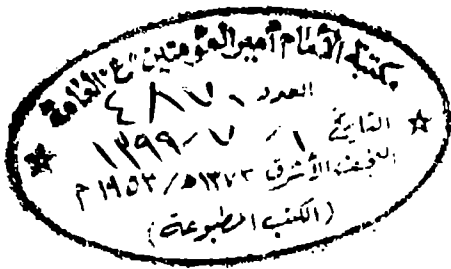 مكتبة الامام أمير المؤمنين "ع" العامة
العدد ٤٨٧٠
التاريخ ١ / ٧ / ١٣٩٩
النجف الأشرف ١٣٧٣هـ/١٩٥٣م
(الكتب المطبوعة)